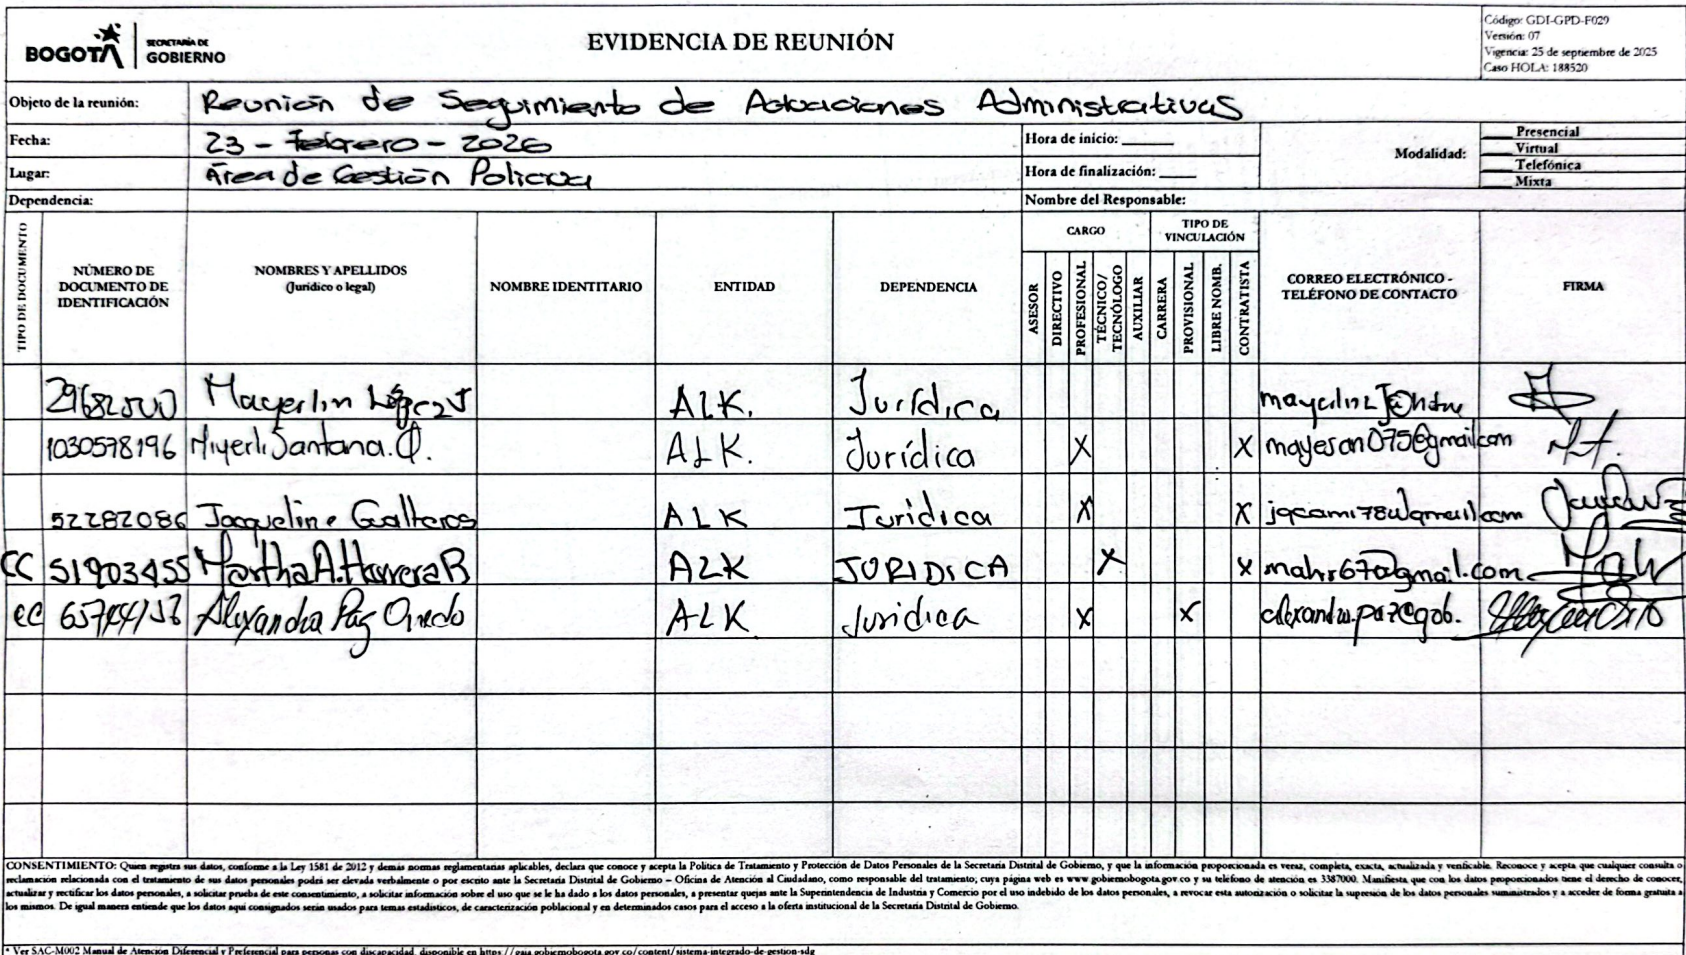 BOGOTÁ
SECRETARÍA DE
GOBIERNO
EVIDENCIA DE REUNIÓN
Código: GDI-GPD-F029
Versión: 07
Vigencia: 25 de septiembre de 2025
Caso HOLA: 188520
Objeto de la reunión: Reunión de Seguimiento de Actuaciones Administrativas
Fecha: 23 - Febrero - 2026
Hora de inicio:
Modalidad:
Presencial
Virtual
Telefónica
Mixta
Lugar: Área de Gestión Policiva
Hora de finalización:
Dependencia:
Nombre del Responsable:
TIPO DE DOCUMENTO
NÚMERO DE DOCUMENTO DE IDENTIFICACIÓN
NOMBRES Y APELLIDOS (Jurídico o legal)
NOMBRE IDENTITARIO
ENTIDAD
DEPENDENCIA
CARGO
ASESOR
DIRECTIVO
PROFESIONAL
TÉCNICO/ TECNÓLOGO
AUXILIAR
TIPO DE VINCULACIÓN
CARRERA
PROVISIONAL
LIBRE NOMB.
CONTRATISTA
CORREO ELECTRÓNICO - TELÉFONO DE CONTACTO
FIRMA
Mayerlin López J ALK. Jurídica
1030578196 Miyerli Santana. Q. ALK. Jurídica X X mayesan075@gmail.com
52282086 Jacqueline Galteros ALK Jurídica X X
CC 51903455 Martha A. Herrera R ALK JURIDICA X X mahr67@gmail.com
CC Alexandra Paz ALK Juridica X X alexandra.paz@gob.
CONSENTIMIENTO: Quien registra sus datos, conforme a la Ley 1581 de 2012 y demás normas reglamentarias aplicables, declara que conoce y acepta la Política de Tratamiento y Protección de Datos Personales de la Secretaría Distrital de Gobierno, y que la información proporcionada es veraz, completa, exacta, actualizada y verificable. Reconoce y acepta que cualquier consulta o
reclamación relacionada con el tratamiento de sus datos personales podrá ser elevada verbalmente o por escrito ante la Secretaría Distrital de Gobierno – Oficina de Atención al Ciudadano, como responsable del tratamiento, cuya página web es www.gobiernobogota.gov.co y su teléfono de atención es 3387000. Manifiesta, que con los datos proporcionados tiene el derecho de conocer,
actualizar y rectificar los datos personales, a solicitar prueba de este consentimiento, a solicitar información sobre el uso que se le ha dado a los datos personales, a presentar quejas ante la Superintendencia de Industria y Comercio por el uso indebido de los datos personales, a revocar esta autorización o solicitar la supresión de los datos personales suministrados y a acceder de forma gratuita a
los mismos. De igual manera entiende que los datos aquí consignados serán usados para temas estadísticos, de caracterización poblacional y en determinados casos para el acceso a la oferta institucional de la Secretaría Distrital de Gobierno.
* Ver SAC-M002 Manual de Atención Diferencial y Preferencial para personas con discapacidad, disponible en https://gaia.gobiernobogota.gov.co/content/sistema-integrado-de-gestion-sdg